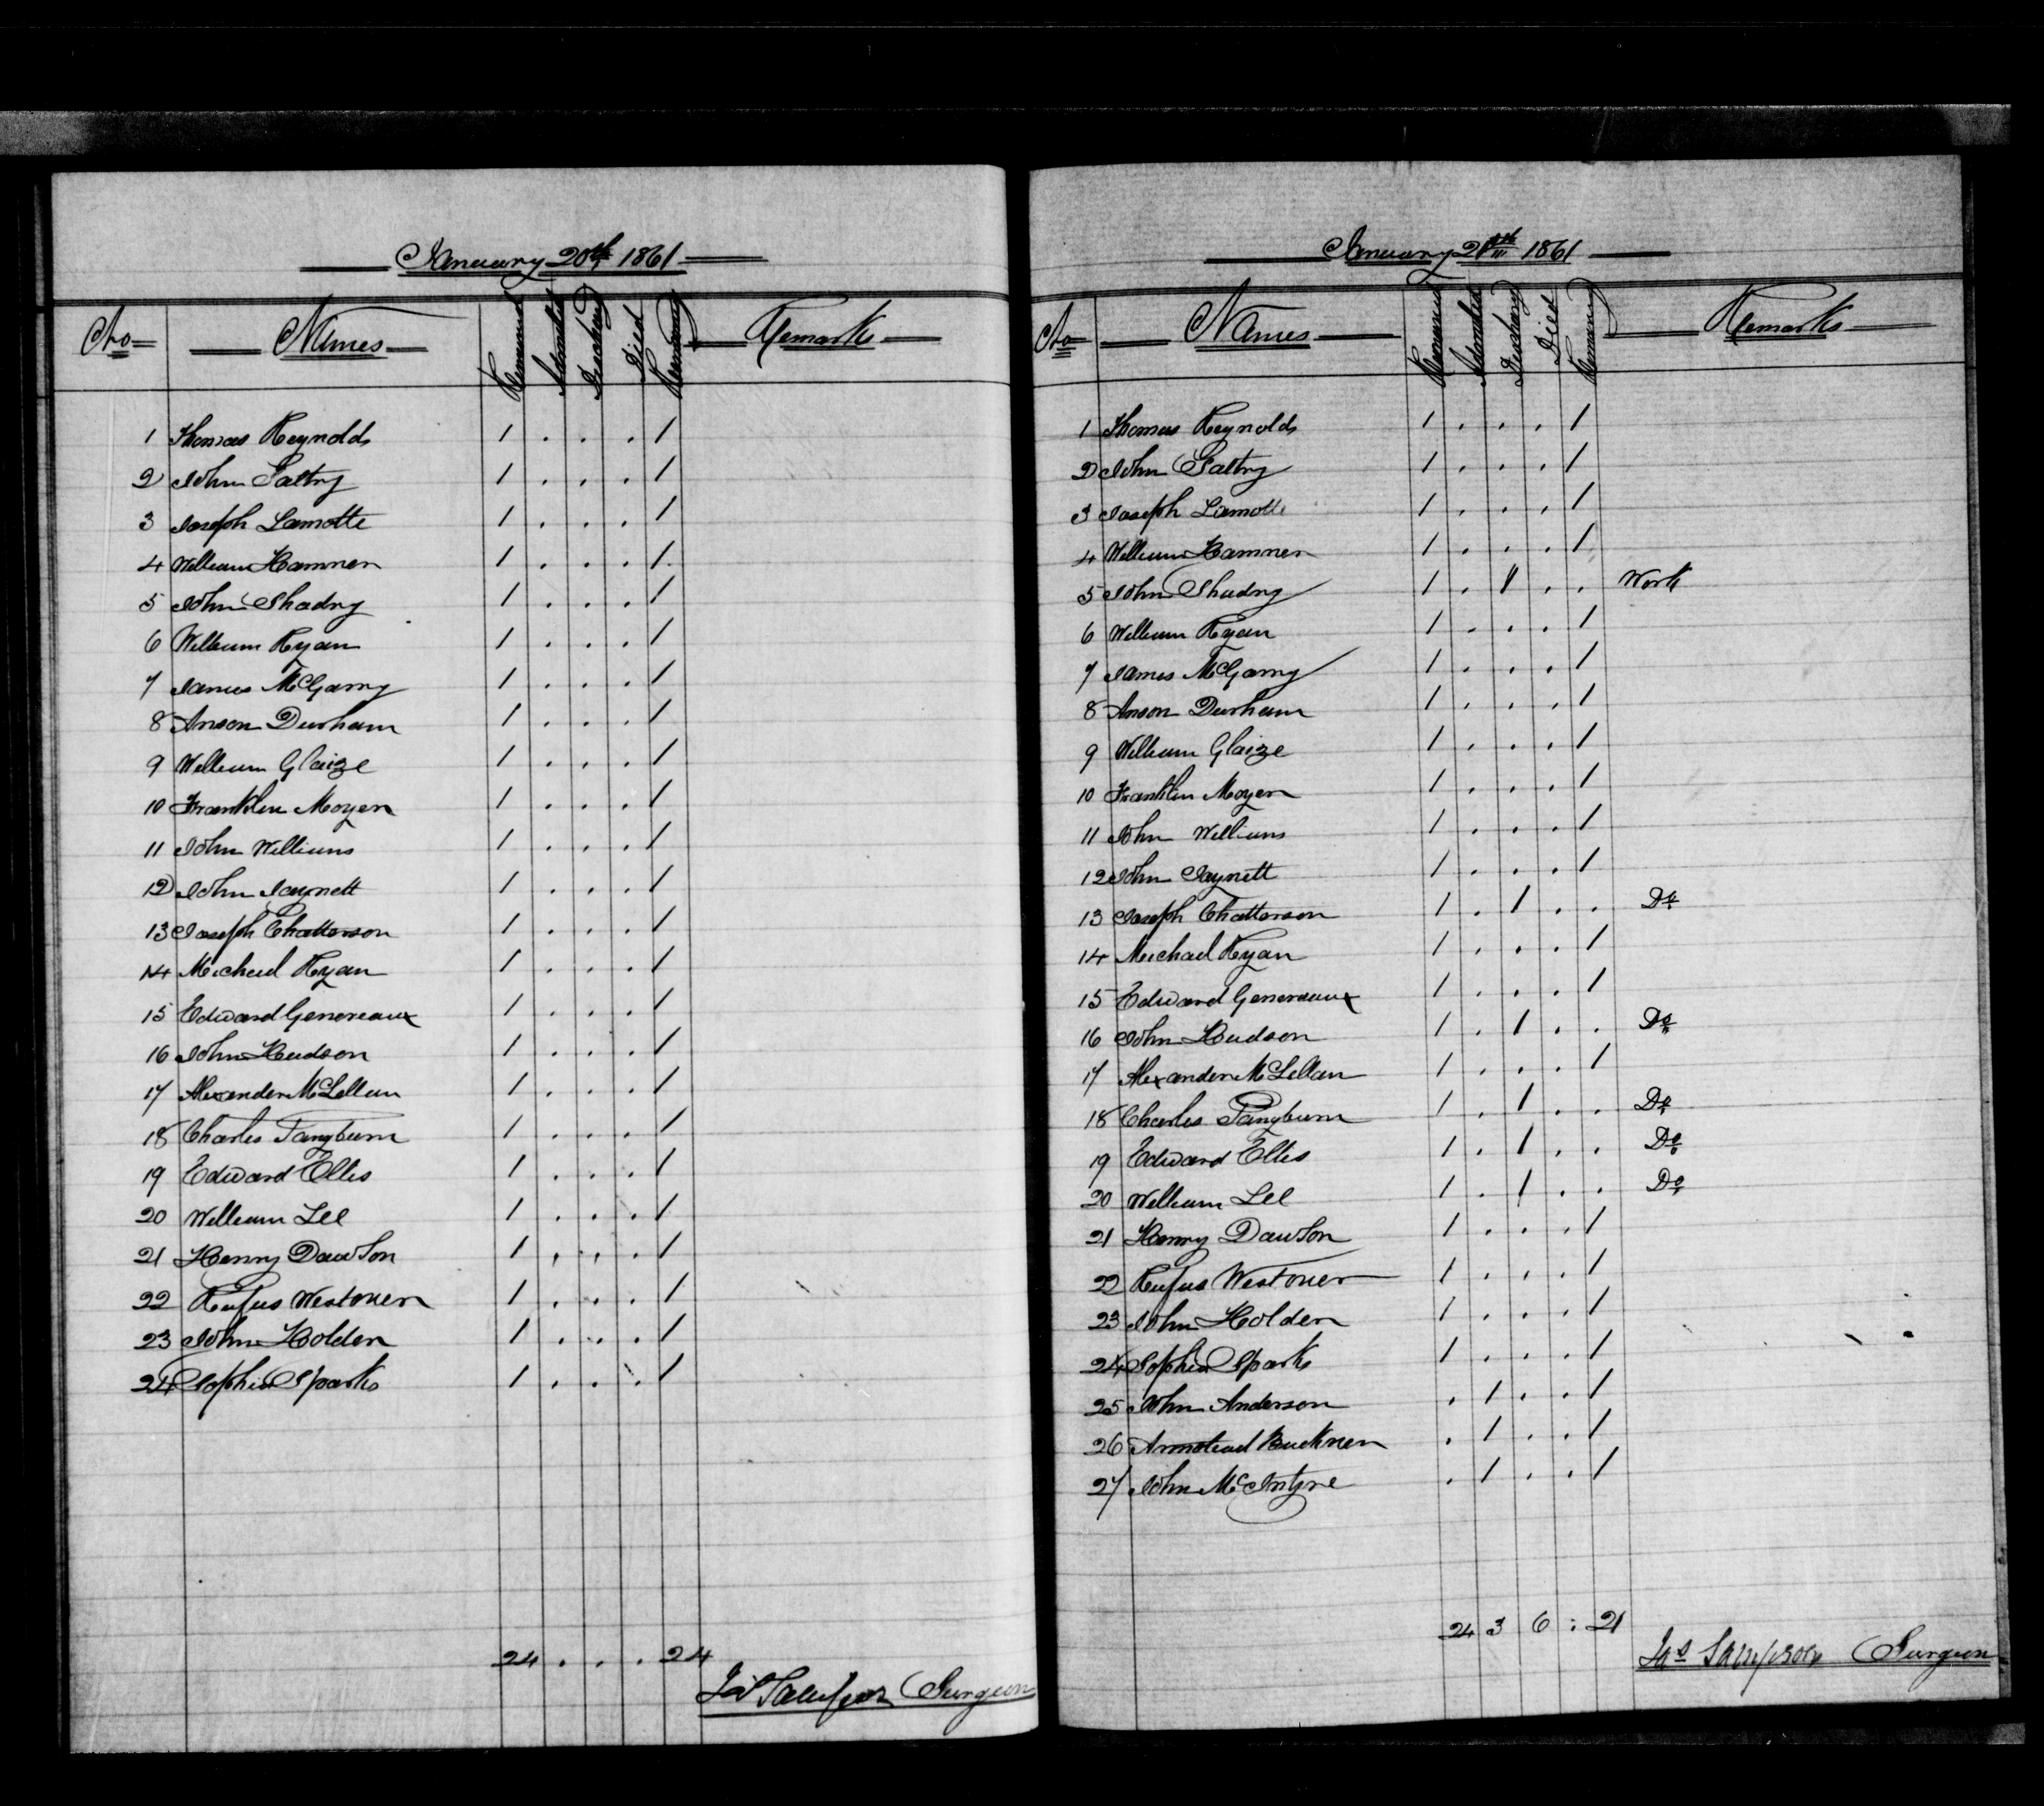 January 20th 1861
No Names Remained Admitted Discharg Died Remaining Remarks
1 Thomas Reynolds 1 . . . 1
2 John Galtry 1 . . . 1
3 Joseph Lamotte 1 . . . 1
4 William Hamner 1 . . . 1
5 John Shadry 1 . . . 1
6 William Ryan 1 . . . 1
7 James McGarry 1 . . . 1
8 Anson Durham 1 . . . 1
9 William Glaize 1 . . . 1
10 Franklin Moyer 1 . . . 1
11 John Williams 1 . . . 1
12 John Jaynett 1 . . . 1
13 Joseph Chatterson 1 . . . 1
14 Michael Ryan 1 . . . 1
15 Edward Genereaux 1 . . . 1
16 John Hudson 1 . . . 1
17 Alexander McLellan 1 . . . 1
18 Charles Pangburn 1 . . . 1
19 Edward Ellis 1 . . . 1
20 William Lee 1 . . . 1
21 Henry Dawson 1 . . . 1
22 Rufus Westover 1 . . . 1
23 John Holden 1 . . . 1
24 Sophia Sparks 1 . . . 1
24 . . . 24
Jas Sampson Surgeon
January 21st 1861
No Names Remained Admitted Discharg Died Remaining Remarks
1 Thomas Reynolds 1 . . . 1
2 John Galtry 1 . . . 1
3 Joseph Lamotte 1 . . . 1
4 William Hamner 1 . . . 1
5 John Shadry 1 . 1 . . Work
6 William Ryan 1 . . . 1
7 James McGarry 1 . . . 1
8 Anson Durham 1 . . . 1
9 William Glaize 1 . . . 1
10 Franklin Moyer 1 . . . 1
11 John Williams 1 . . . 1
12 John Jaynett 1 . . . 1
13 Joseph Chatterson 1 . 1 . . Do
14 Michael Ryan 1 . . . 1
15 Edward Genereaux 1 . . . 1
16 John Hudson 1 . 1 . . Do
17 Alexander McLellan 1 . . . 1
18 Charles Pangburn 1 . 1 . . Do
19 Edward Ellis 1 . 1 . . Do
20 William Lee 1 . 1 . . Do
21 Henry Dawson 1 . . . 1
22 Rufus Westover 1 . . . 1
23 John Holden 1 . . . 1
24 Sophia Sparks 1 . . . 1
25 John Anderson . 1 . . 1
26 Armstead Buckner . 1 . . 1
27 John McIntyre . 1 . . 1
24 3 6 : 21
Jas Sampson Surgeon